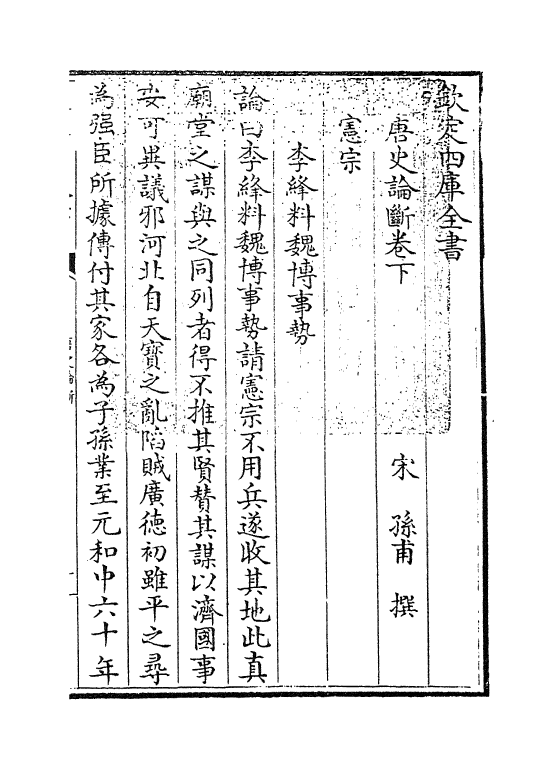 欽定四庫全書
唐史論斷卷下
宋 孫甫 撰
憲宗
李絳料魏博事勢
論曰李絳料魏博事勢請憲宗不用兵遂收其地此真
廟堂之謀與之同列者得不推其賢賛其謀以濟國事
安可異議邪河北自天寳之亂陷賊廣徳初雖平之尋
為强臣所據傳付其家各為子孫業至元和中六十年
唐史論斷